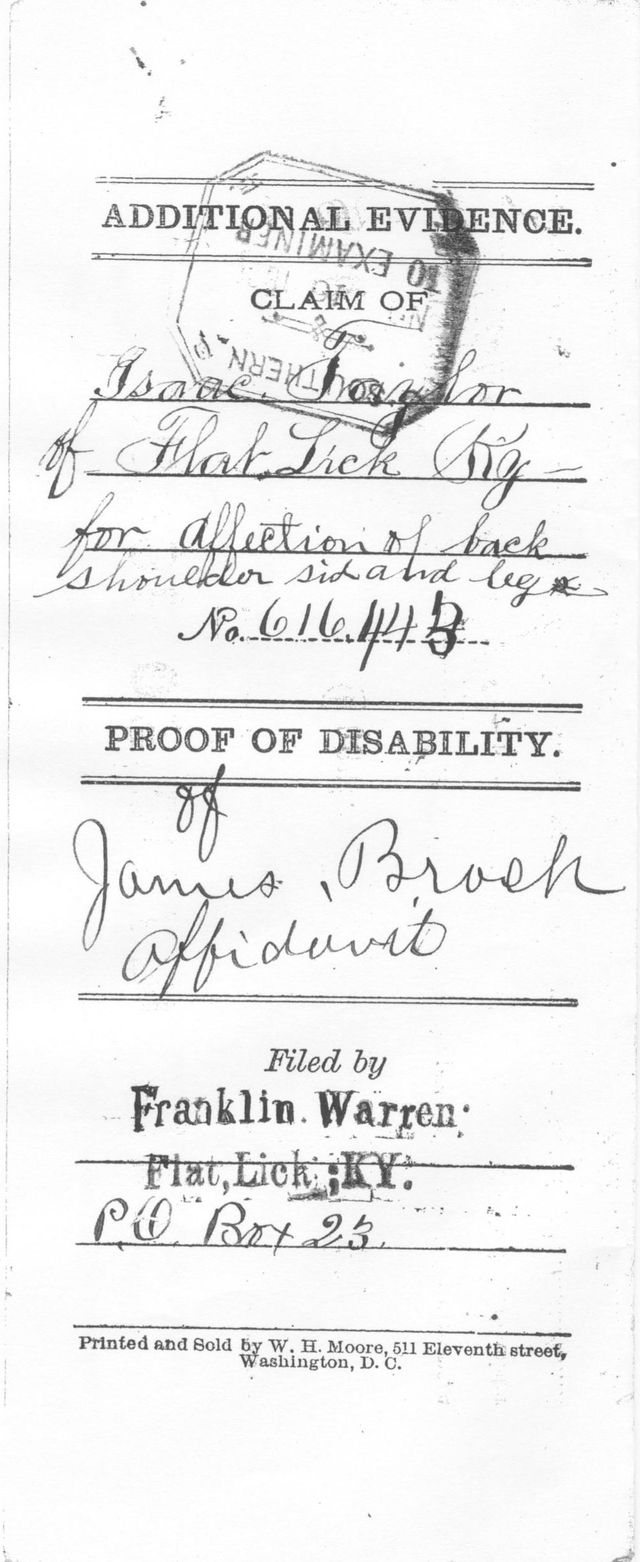 ADDITIONAL EVIDENCE.
TO EXAMINER
CLAIM OF
SOUTHERN
Isaac Taylor
of Flat Lick Ky
for affection of back
shoulder sid and leg
No. 616.443
PROOF OF DISABILITY.
of
James Brock
Affidavit
Filed by
Franklin. Warren.
Flat, Lick ; KY.
P.O. Box 23.
Printed and Sold by W. H. Moore, 511 Eleventh street,
Washington, D. C.